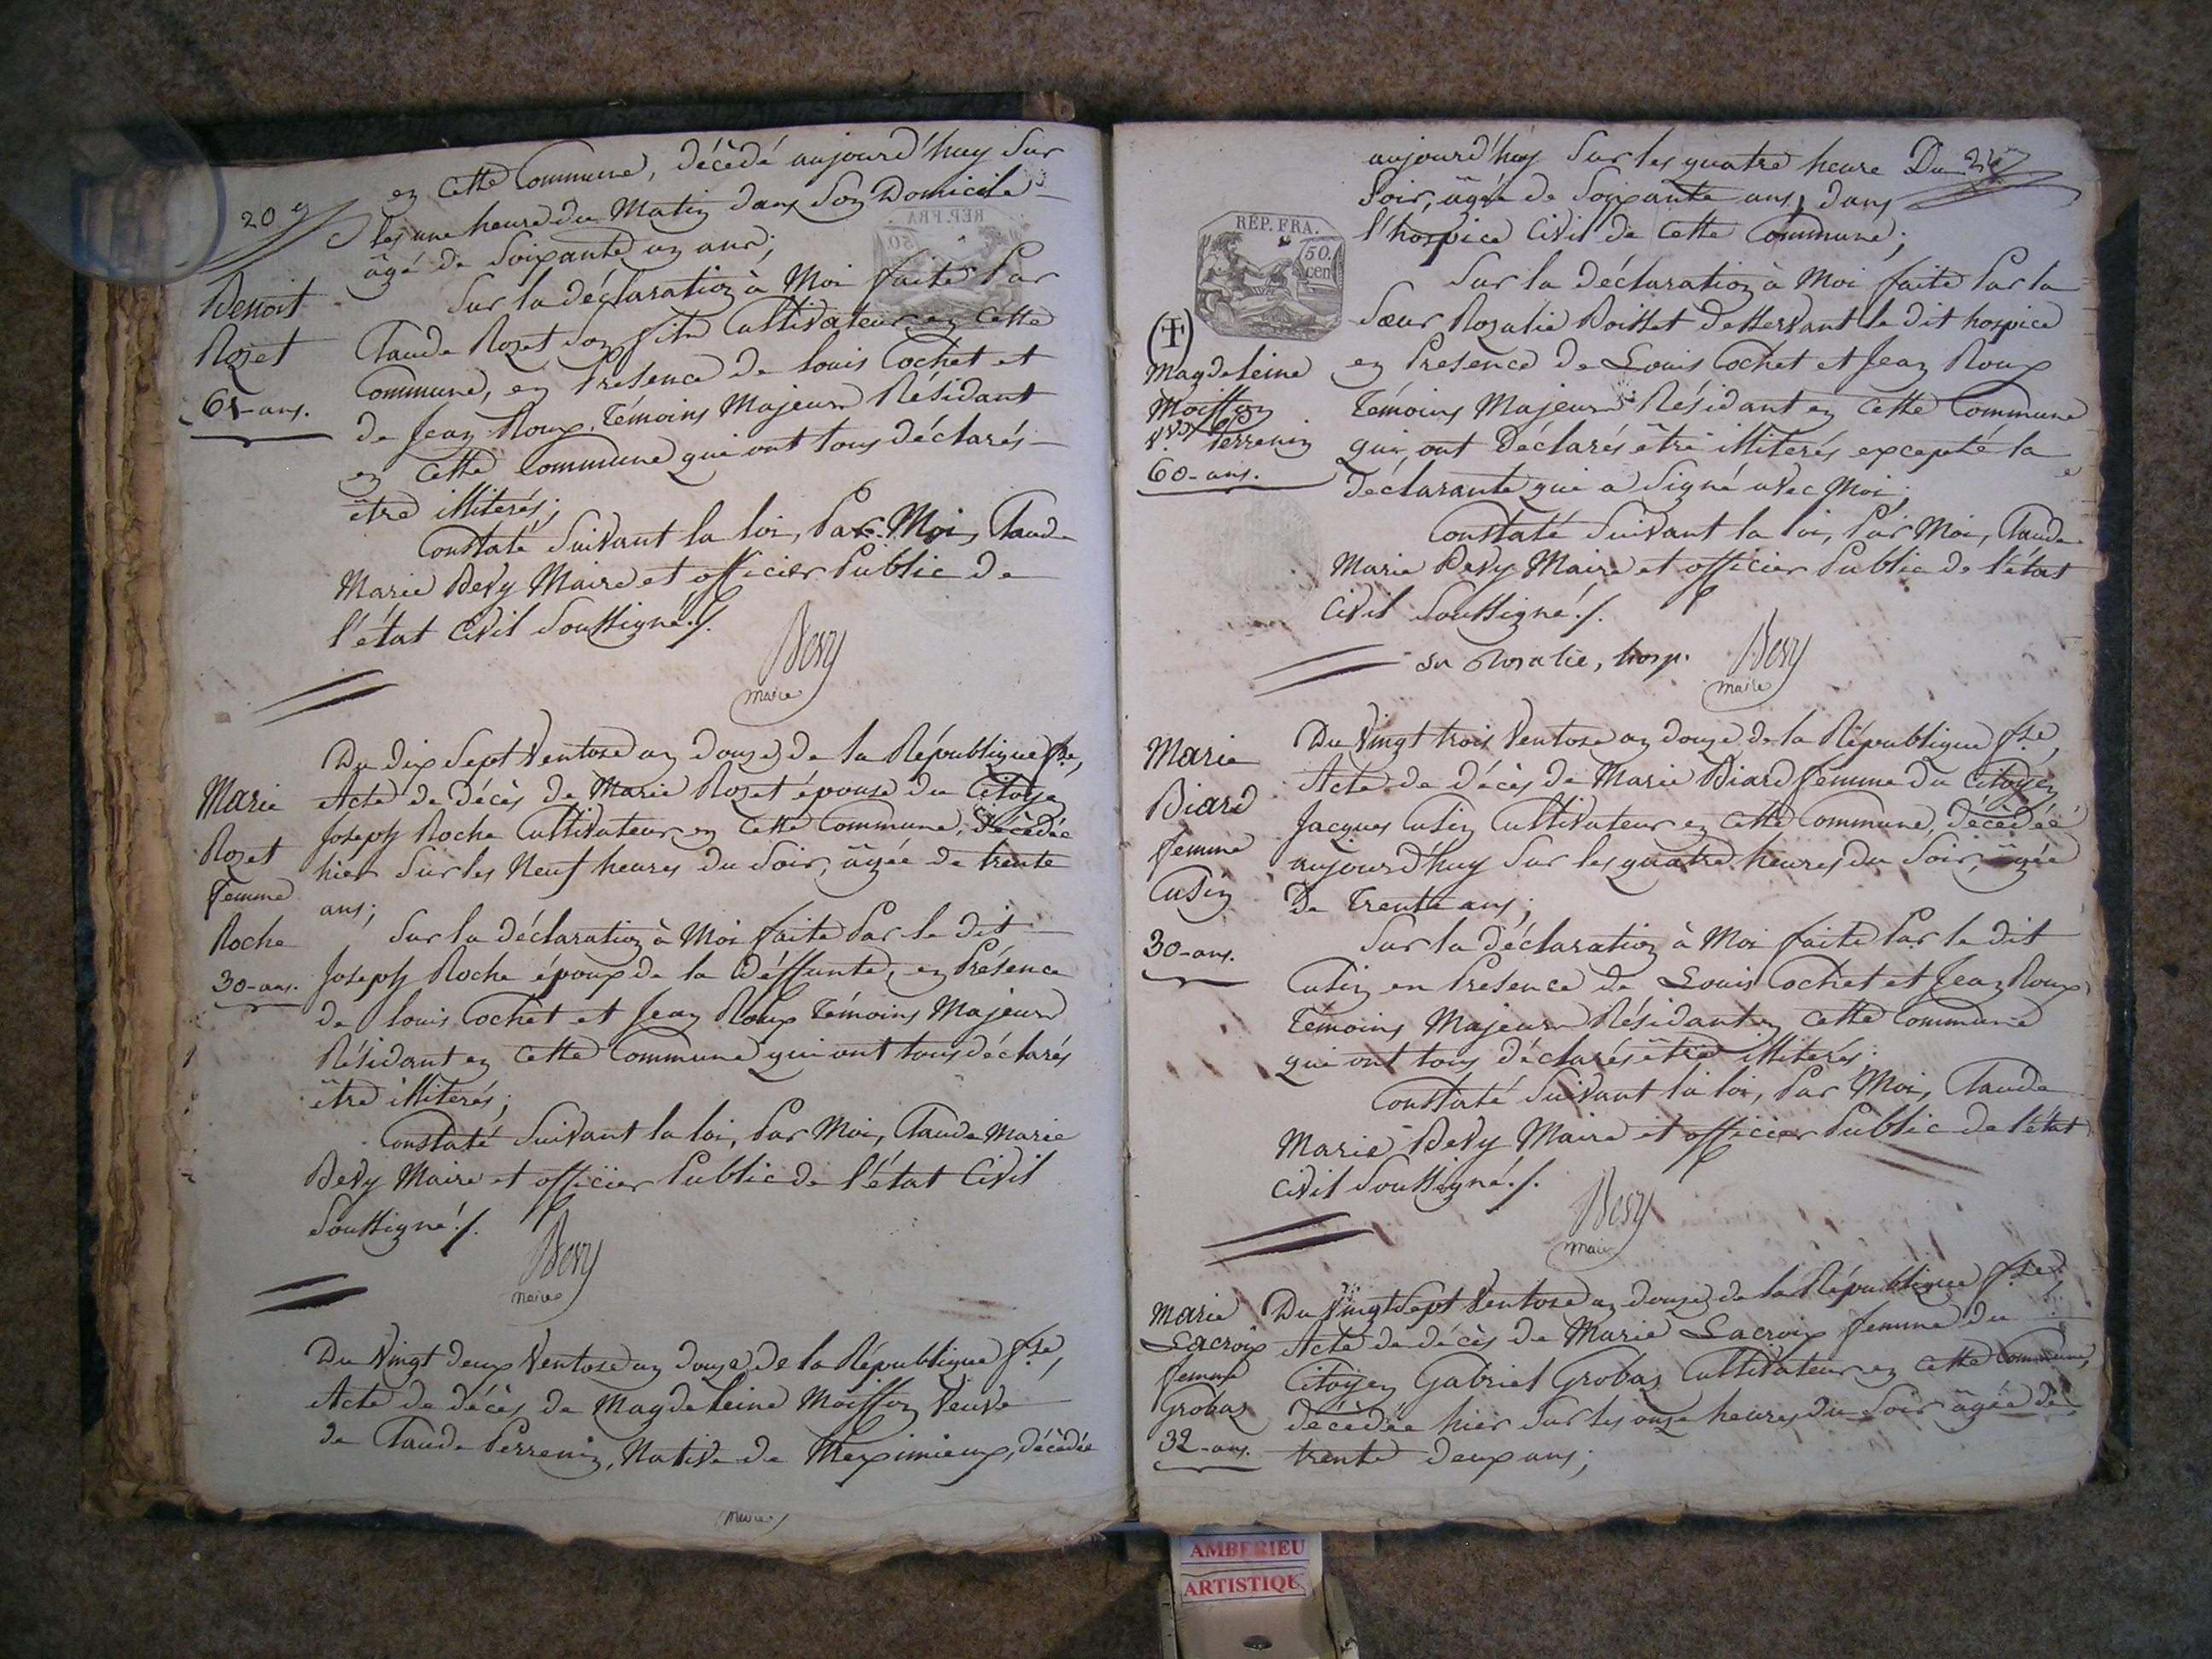 20
en cette Commune, décédé aujourd'huy sur
les une heure du Matin dans son Domicile
âgé de soixante un ans;
Benoit
Rozet
61-ans.
Sur la déclaration à Moi faite Par
Claude Rozet son fils Cultivateur en cette
Commune, en Presence de louis Cochet et
de Jean Roux, Témoins Majeurs Résidant
en cette Commune qui ont tous déclarés
être illiterés;
Constaté suivant la loi, Par Moi, Claude
Marie Bevy Maire et officier Public de
l'état Civil soussigné./.
Bevy
maire
Marie
Rozet
femme
Roche
30-ans.
Du dix sept Ventose an douze de la République fse,
Acte de décès de Marie Rozet épouse du Citoyen
Joseph Roche Cultivateur en cette Commune, décédée
hier sur les Neuf heures du soir, âgée de trente
ans;
Sur la déclaration à Moi faite Par le dit
Joseph Roche époux de la déffunte, en Présence
de louis Cochet et Jean Roux Témoins Majeurs
Résidant en cette Commune qui ont tous déclarés
être illiterés;
Constaté suivant la loi, Par Moi, Claude Marie
Bevy Maire et officier Public de l'état Civil
soussigné./.
Bevy
maire
Du Vingt deux Ventose an douze de la République fse,
Acte de décès de Magdeleine Moisson Veuve
de Claude Perrenin, Native de Meximieux, décédée
maire
aujourd'huy sur les quatre heure Du
soir, âgée de soixante ans, dans
l'hospice Civil de cette Commune;
RÉP. FRA.
50.
cen
Magdeleine
Moisson
Vve Perrenin
60-ans.
Sur la déclaration à Moi faite Par la
Sœur Rozalie Poisset desservant le dit hospice
en Presence de Louis Cochet et Jean Roux
Témoins Majeurs Résidant en cette Commune
qui, ont déclarés être illiterés excepté la
déclarante qui a signé avec Moi;
Constaté suivant la loi, Par Moi, Claude
Marie Bevy Maire et officier Public de l'état
Civil soussigné./.
sr Rosalie, hosp. Bevy
maire
Marie
Biard
femme
Cusin
30-ans.
Du Vingt trois Ventose an douze de la République fse,
Acte de décès de Marie Biard femme du Citoyen
Jacques Cusin Cultivateur en cette Commune, décédée
aujourd'huy sur les quatre heures du soir, âgée
De Trente ans;
Sur la déclaration à Moi faite Par le dit
Cusin en Presence de Louis Cochet et Jean Roux
Témoins Majeurs Résidant en cette Commune
qui ont tous déclarés être illiterés.
Constaté suivant la loi, Par Moi, Claude
Marie Bevy Maire et officier Public de l'état
Civil soussigné./.
Bevy
maire
Marie
Lacroix
femme
Grobas
32-ans.
Du Vingt sept Ventose an douze de la République fse
Acte de décès de Marie Lacroix femme du
Citoyen Gabriel Grobas Cultivateur en cette Commune,
décédée hier sur les onze heures du soir âgée de
trente deux ans;
AMBERIEU
ARTISTIQU